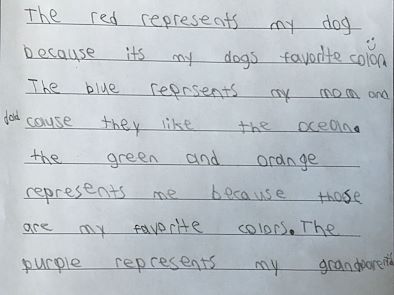 The red represents my dog
because its my dogs favorite color
The blue reprsents my mom and
dad cause they like the ocean.
the green and orange
represents me because those
are my favorite colors. The
purple represents my grandparents